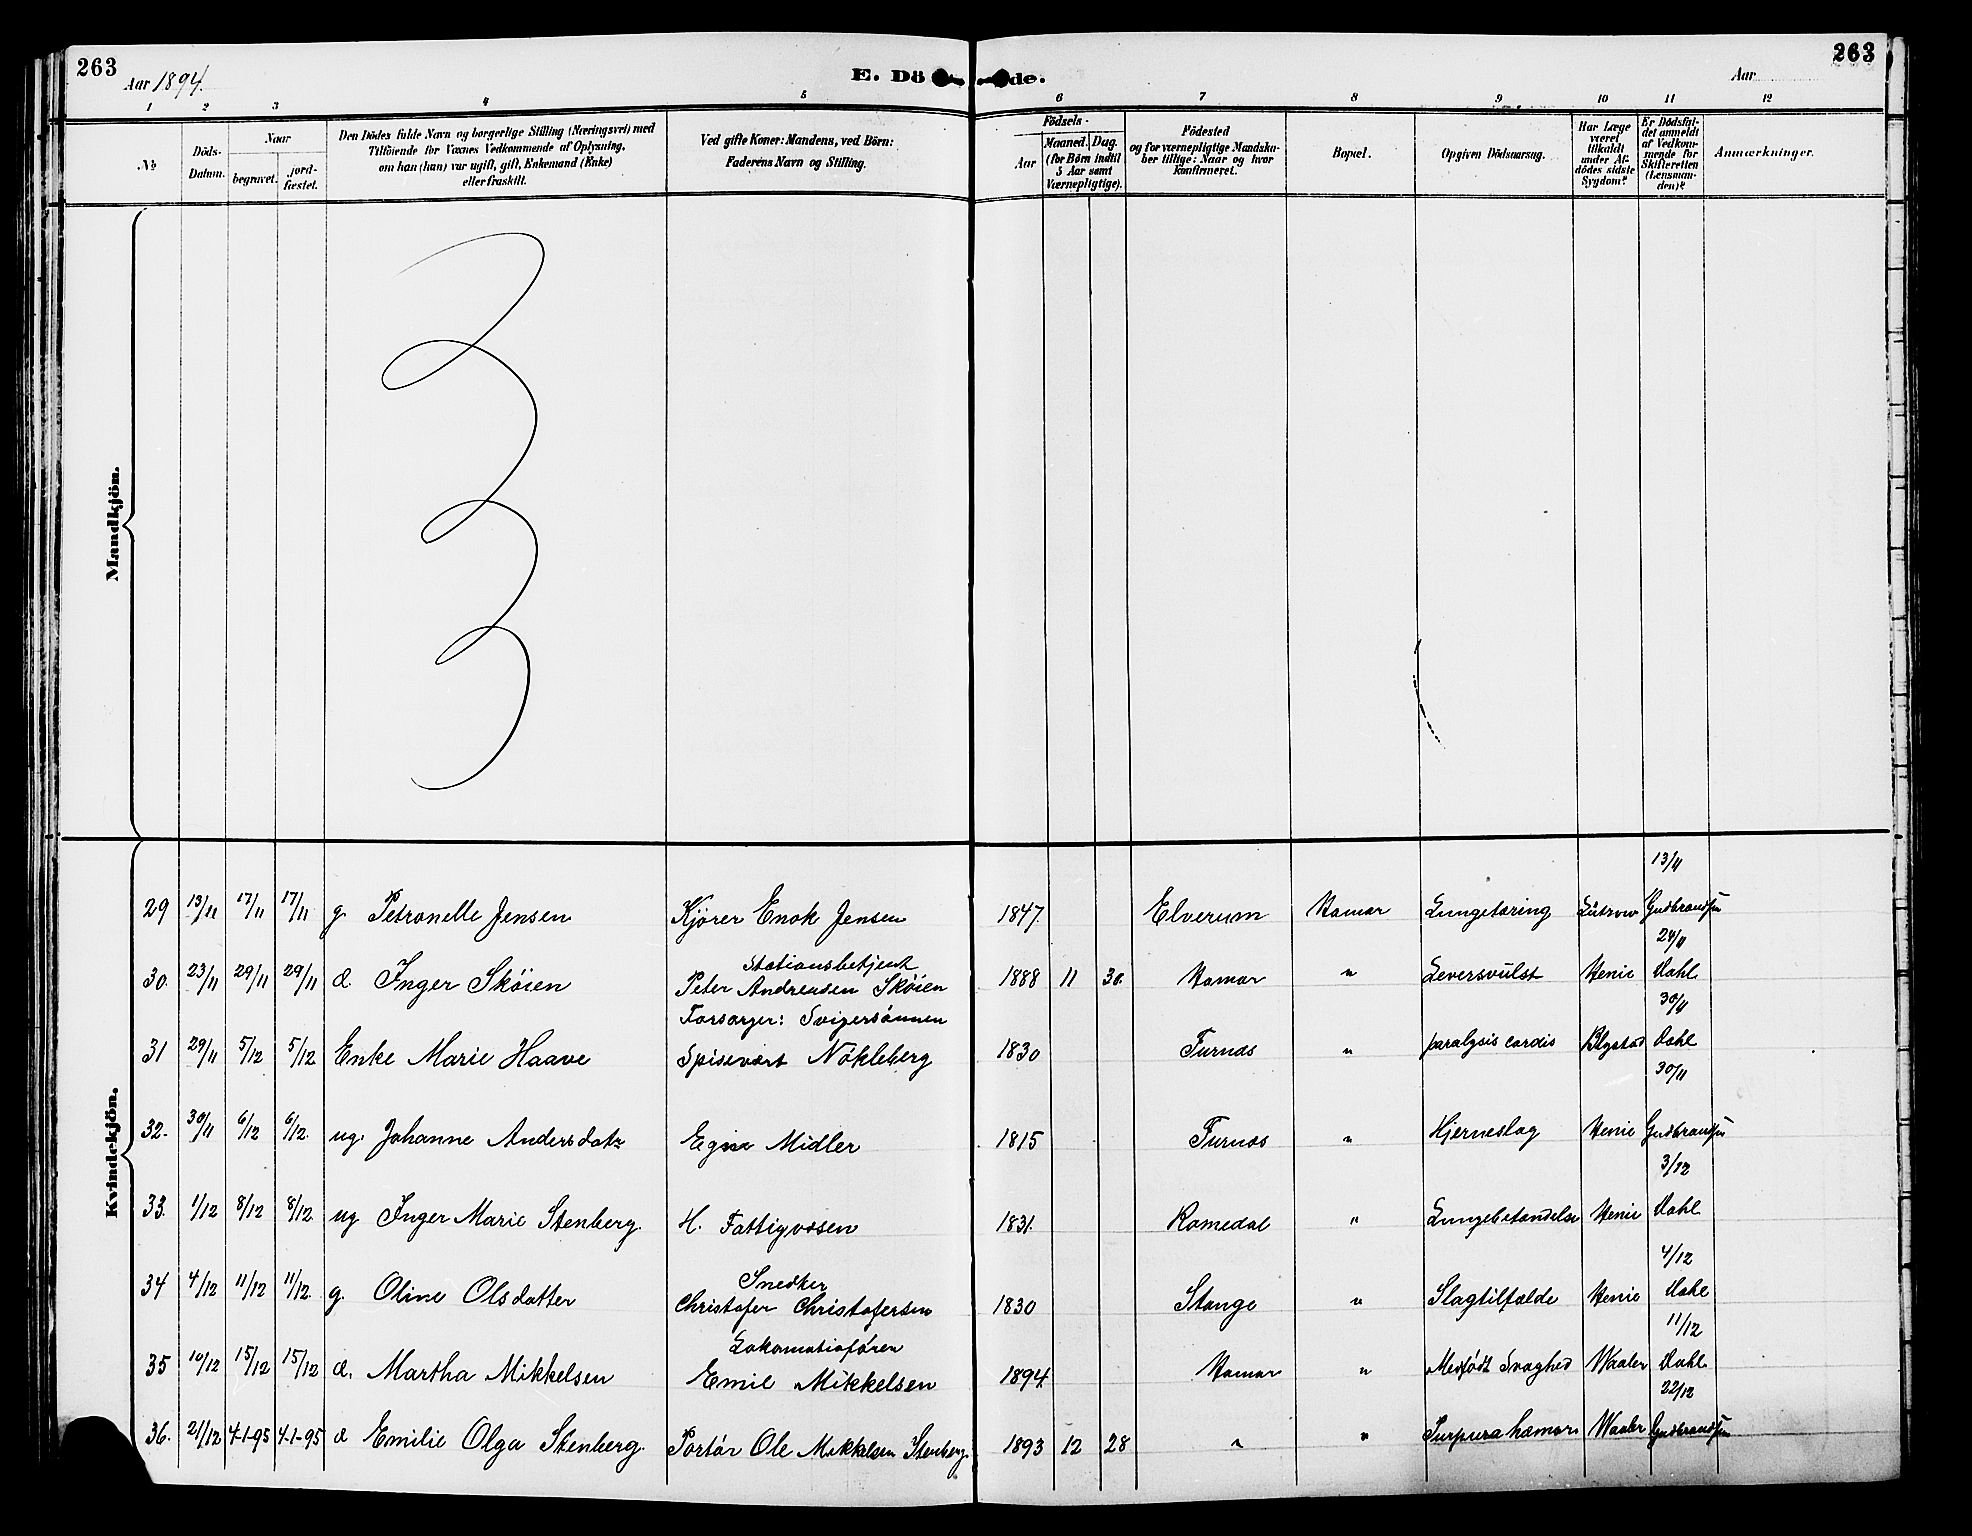 263
Aar 1894.
E. Dö de.
Aar
263
1 2 3 4 5 6 7 8 9 10 11 12
№
Döds-Datum.
Naar
begravet.
jord-fæstet.
Den Dödes fulde Navn og borgerlige Stilling (Næringsvei) med
Tilföiende for Voxnes Vedkommende af Oplysning,
om han (hun) var ugift, gift, Enkemand (Enke)
eller fraskilt.
Ved gifte Koner: Mandens, ved Börn:
Faderens Navn og Stilling.
Födsels-
Aar
Maaned. Dag.
(for Börn indtil
5 Aar samt
Værnepligtige).
Födested
og for værnepligtige Mandska-
ber tillige: Naar og hvor
konfirmeret.
Bopæl.
Opgiven Dödsaarsag.
Har Læge
været
tilkaldt
under Af-
dödes sidste
Sygdom?
Er Dödsfal-
det anmeldt
af Vedkom-
mende for
Skifteretten
(Lensman-
den)?
Anmærkninger.
Mandkjön.
Kvindekjön.
13/11
29 13/11 17/11 17/11 g. Petronelle Jensen Kjörer Enok Jensen 1847. Elverum Hamar Lungetæring Lütrow Gudbrandsen
Stationsbetjent 24/11
30. 23/11 29/11 29/11 d. Inger Sköien Peter Andreasen Sköien 1888 11 30. Hamar " Leversvulst Henie Dahl
Forsørger: Svigersönnen 30/11
31 29/11 5/12 5/12 Enke Marie Haave Spisevært Nökleberg 1830 Furnæs " paralysis cordis Blystad Dahl
30/11
32. 30/11 6/12 6/12. ug. Johanne Andersdatr Egne Midler 1815 Furnæs " Hjerneslag Henie Gudbrandsen
3/12
33. 1/12 8/12 8/12 ug Inger Marie Stenberg. H. Fattigvæsen 1831. Romedal " Lungebetændelse Henie Dahl
4/12
Snedker
34 4/12 11/12 11/12. g. Oline Olsdatter Christofer Christofersen 1830 Stange " Slagtilfælde Henie Dahl
Lokomotivfören 11/12
35 10/12 15/12 15/12 d. Martha Mikkelsen Emil Mikkelsen 1894 Hamar " Medfødt Svaghed Waaler Dahl
22/12
36. 21/12 4-1-95 4-1-95 d Emilie Olga Stenberg. Portör Ole Mikkelsen Stenberg. 1893 12 28 " " Purpura hæmor. Waaler Gudbrandsen